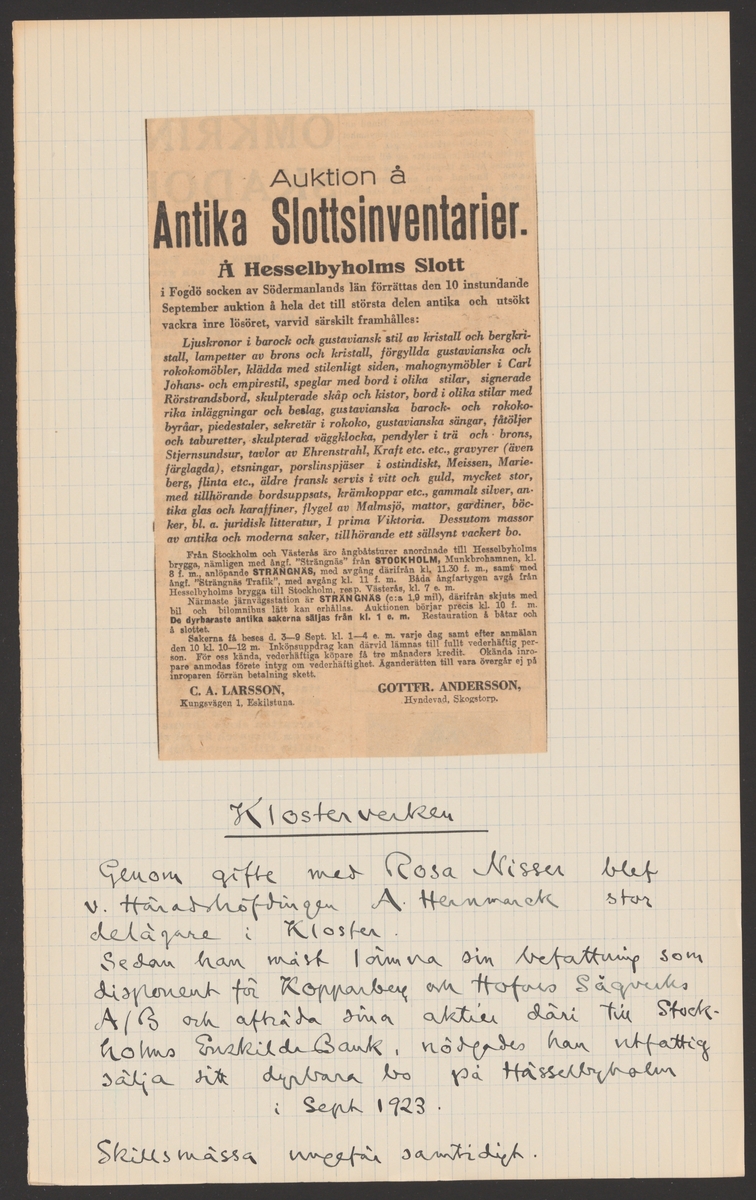 Auktion å
Antika Slottsinventarier.
Å Hesselbyholms Slott
i Fogdö socken av Södermanlands län förrättas den 10 instundande
September auktion å hela det till största delen antika och utsökt
vackra inre lösöret, varvid särskilt framhålles:
Ljuskronor i barock och gustaviansk stil av kristall och bergkri-
stall, lampetter av brons och kristall, förgyllda gustavianska och
rokokomöbler, klädda med stilenligt siden, mahognymöbler i Carl
Johans- och empirestil, speglar med bord i olika stilar, signerade
Rörstrandsbord, skulpterade skåp och kistor, bord i olika stilar med
rika inläggningar och beslag, gustavianska barock- och rokoko-
byråar, piedestaler, sekretär i rokoko, gustavianska sängar, fåtöljer
och taburetter, skulpterad väggklocka, pendyler i trä och brons,
Stjernsundsur, tavlor av Ehrenstrahl, Kraft etc. etc., gravyrer (även
färglagda), etsningar, porslinspjäser i ostindiskt, Meissen, Marie-
berg, flinta etc., äldre fransk servis i vitt och guld, mycket stor,
med tillhörande bordsuppsats, krämkoppar etc., gammalt silver, an-
tika glas och karaffiner, flygel av Malmsjö, mattor, gardiner, böc-
ker, bl. a. juridisk litteratur, 1 prima Viktoria. Dessutom massor
av antika och moderna saker, tillhörande ett sällsynt vackert bo.
Från Stockholm och Västerås äro ångbåtsturer anordnade till Hesselbyholms
brygga, nämligen med ångf. "Strängnäs" från STOCKHOLM, Munkbrohamnen, kl.
8 f. m., anlöpande STRÄNGNÄS, med avgång därifrån kl. 11.30 f. m., samt med
ångf. "Strängnäs Trafik", med avgång kl. 11 f. m. Båda ångfartygen avgå från
Hesselbyholms brygga till Stockholm, resp. Västerås, kl. 7 e. m.
Närmaste järnvägsstation är STRÄNGNÄS (c:a 1,9 mil), därifrån skjuts med
bil och bilomnibus lätt kan erhållas. Auktionen börjar precis kl. 10 f. m.
De dyrbaraste antika sakerna säljas från kl. 1 e. m. Restauration å båtar och
å slottet.
Sakerna få beses d. 3—9 Sept. kl. 1—4 e. m. varje dag samt efter anmälan
den 10 kl. 10—12 m. Inköpsuppdrag kan därvid lämnas till fullt vederhäftig per-
son. För oss kända, vederhäftiga köpare få tre månaders kredit. Okända inro-
pare anmodas förete intyg om vederhäftighet. Äganderätten till vara övergår ej på
inroparen förrän betalning skett.
C. A. LARSSON, GOTTFR. ANDERSSON,
Kungsvägen 1, Eskilstuna. Hyndevad, Skogstorp.
Klosterverken
Genom gifte med Rosa Nisser blef
v. Häradshöfdingen A. Hernmarck stor
delägare i Kloster.
Sedan han måst lämna sin befattning som
disponent för Kopparberg och Hofors Sågverks
A/B och afträda sina aktier däri till Stock-
holms Enskilda Bank, nödgades han utfattig
sälja sitt dyrbara bo på Hässelbyholm
i Sept 1923.
Skillsmässa ungefär samtidigt.